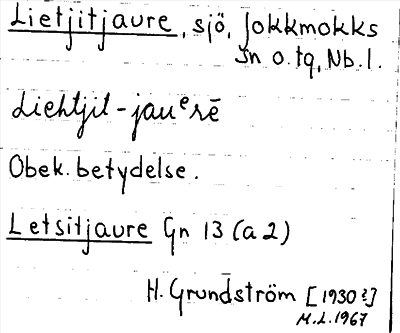 Lietjitjaure, sjö, Jokkmokks
sn o. tg, Nb. l.
Liehtjil-jauᵉrē
Obek. betydelse.
Letsitjaure Gn 13 (a 2)
H. Grundström [1930?]
M.L. 1967